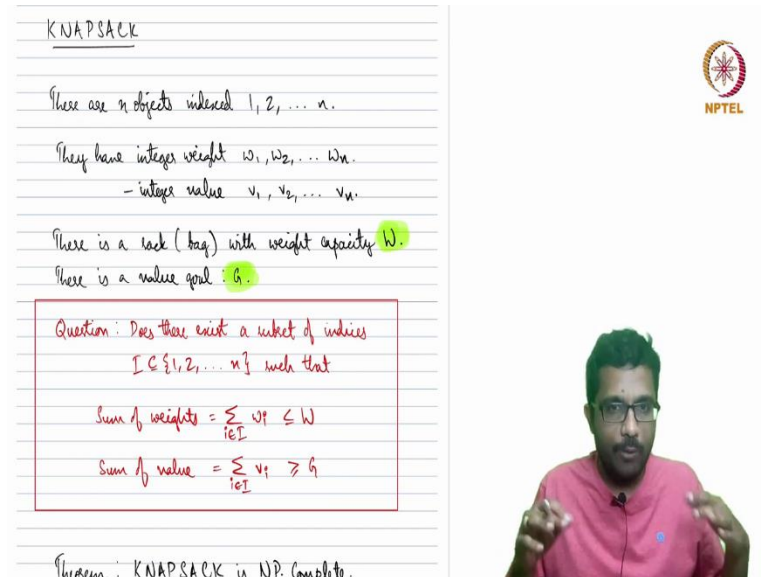 KNAPSACK
There are n objects indexed 1, 2, ... n.
They have integer weight w₁, w₂, ... wₙ.
- integer value v₁, v₂, ... vₙ.
There is a sack (bag) with weight capacity W.
There is a value goal : G.
Question : Does there exist a subset of indices
I ⊆ {1, 2, ... n} such that
Sum of weights = ∑_{i∈I} wᵢ ≤ W
Sum of value = ∑_{i∈I} vᵢ ≥ G
Theorem : KNAPSACK is NP-Complete.
NPTEL